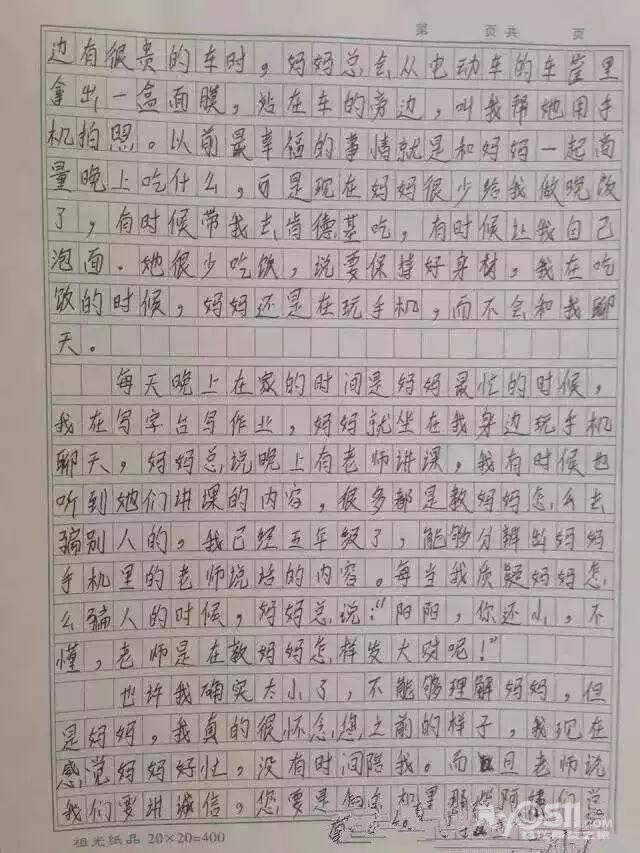 第 页共 页
边有很贵的车时，妈妈总会从电动车的车筐里
拿出一盒面膜，站在车的旁边，叫我帮她用手
机拍照。以前最幸福的事情就是和妈妈一起商
量晚上吃什么，可是现在妈妈很少给我做晚饭
了，有时候带我去肯德基吃，有时候让我自己
泡面。她很少吃饭，说要保持好身材，我在吃
饭的时候，妈妈还是在玩手机，而不会和我聊
天。
每天晚上在家的时间是妈妈最忙的时候，
我在写字台写作业，妈妈就坐在我身边玩手机
聊天，妈妈总说晚上有老师讲课，我有时候也
听到她们讲课的内容，很多都是教妈妈怎么去
骗别人的，我已经五年级了，能够分辨出妈妈
手机里的老师说话的内容。每当我质疑妈妈怎
么骗人的时候，妈妈总说：“阳阳，你还小，不
懂，老师是在教妈妈怎样发大财呢！”
也许我确实太小了，不能够理解妈妈，但
是妈妈，我真的很怀念您之前的样子，我现在
感觉妈妈好忙，没有时间陪我。而且老师说
我们要讲诚信，您要是和手机里那些阿姨们
祖光纸品 20×20=400